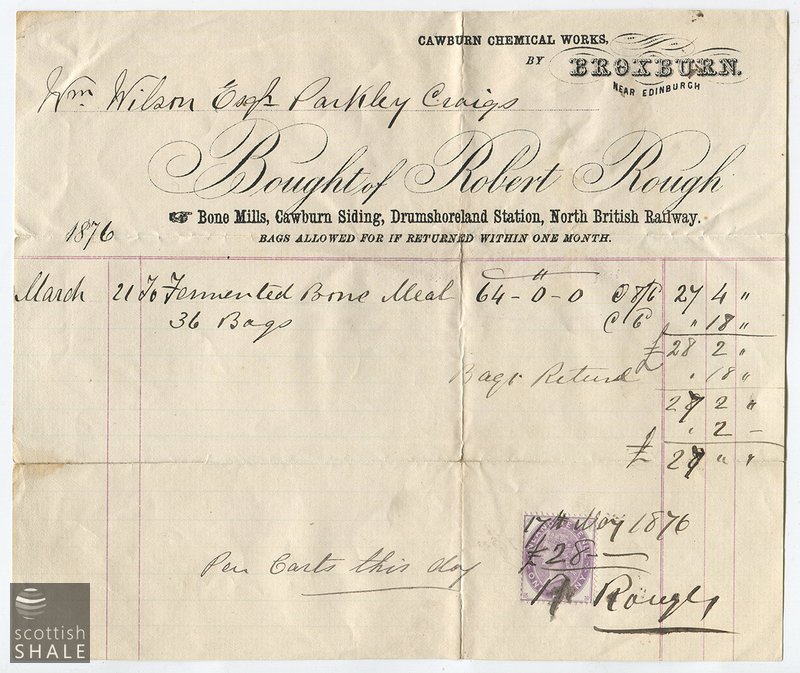 CAWBURN CHEMICAL WORKS,
BY BROXBURN.
NEAR EDINBURGH
Wm Wilson Esqr Parkley Craigs
Bought of Robert Rough
Bone Mills, Cawburn Siding, Drumshoreland Station, North British Railway.
1876
BAGS ALLOWED FOR IF RETURNED WITHIN ONE MONTH.
March 21 To Fermented Bone Meal 64-0-0 @ 8/6 27 4 "
36 Bags @ 6 " 18 "
£ 28 2 "
Bags Returd " 18 "
2 "
" 2 -
£ " "
17th May 1876
£28-
Per Carts this day
R Rough
scottish
SHALE